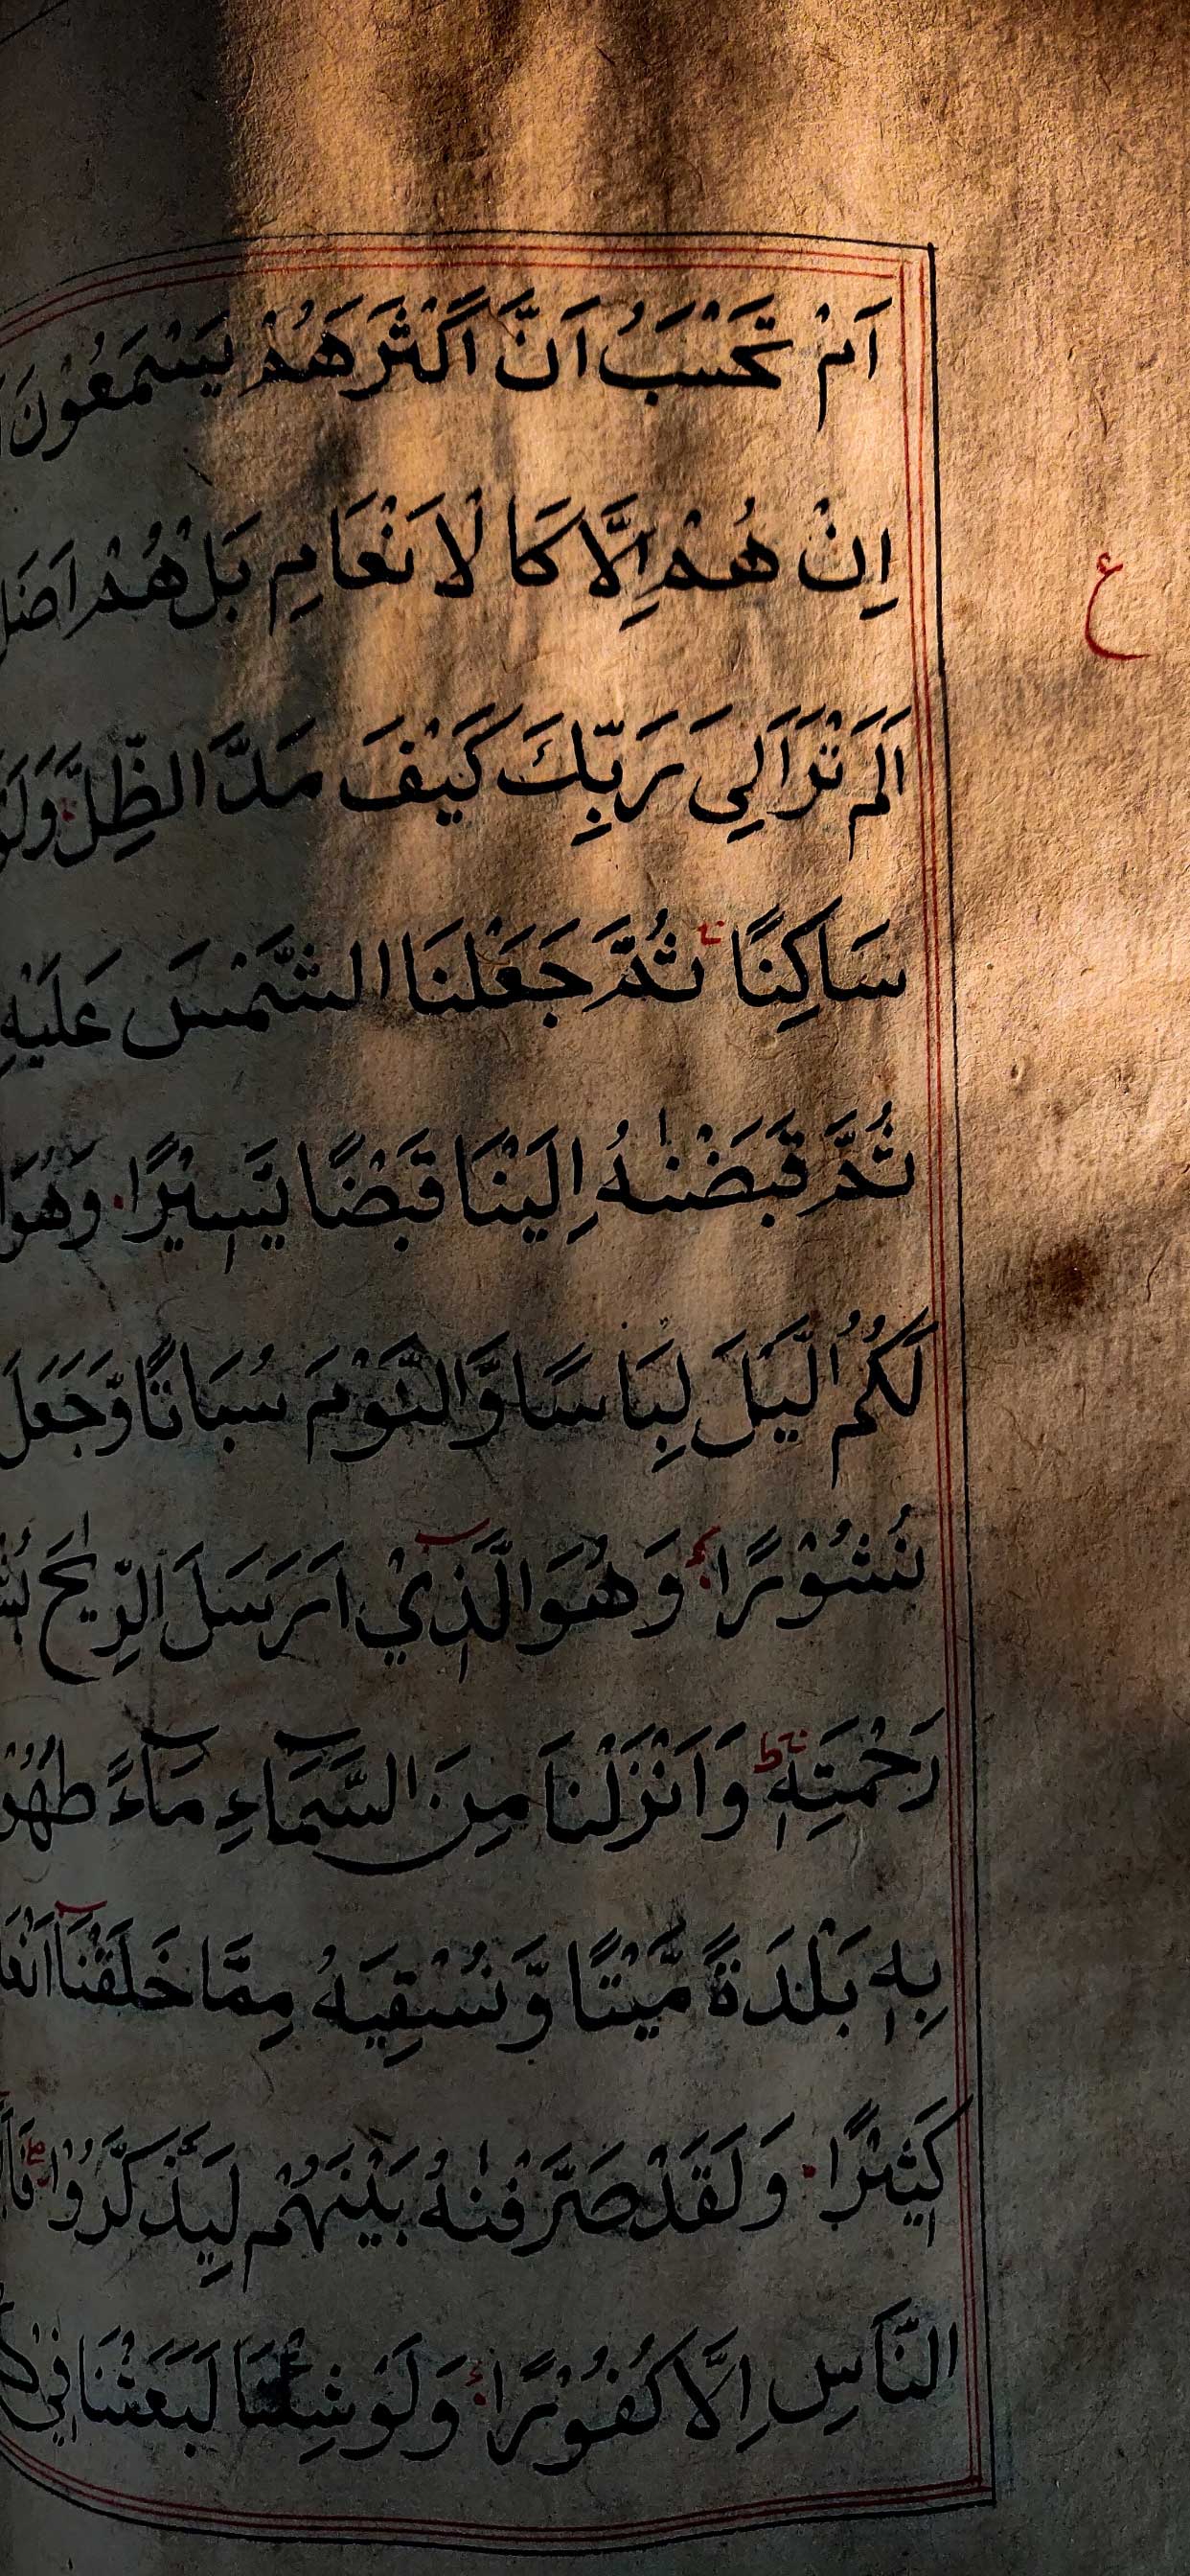 اَمْ تَحْسَبُ اَنَّ اَكْثَرَهُمْ يَسْمَعُوْنَ
اِنْ هُمْ اِلَّا كَا لْاَنْعَامِ بَلْ هُمْ اَضَلُّ
ع
اَلَمْ تَرَ اِلٰي رَبِّكَ كَيْفَ مَدَّ الظِّلَّ وَلَوْ
سَاكِنًا ثُمَّ جَعَلْنَا الشَّمْسَ عَلَيْهِ
ثُمَّ قَبَضْنٰهُ اِلَيْنَا قَبْضًا يَّسِيْرًا وَهُوَ
لَكُمُ الَّيْلَ لِبَا سًا وَّالنَّوْمَ سُبَاتًا وَّجَعَلَ
نُشُوْرًا وَهُوَ الَّذِيْ اَرْسَلَ الرِّيٰحَ
رَحْمَتِهٖ وَاَنْزَلْنَا مِنَ السَّمَآءِ مَآءً طَهُوْ
بِهٖ بَلْدَةً مَّيْتًا وَّنُسْقِيَهٗ مِمَّا خَلَقْنَآ اَنْعَا
كَثِيْرًا وَلَقَدْ صَرَّفْنٰهُ بَيْنَهُمْ لِيَذَّكَّرُوْا فَاَ
النَّاسِ اِلَّا كُفُوْرًا وَلَوْ شِئْنَا لَبَعَثْنَا فِيْ